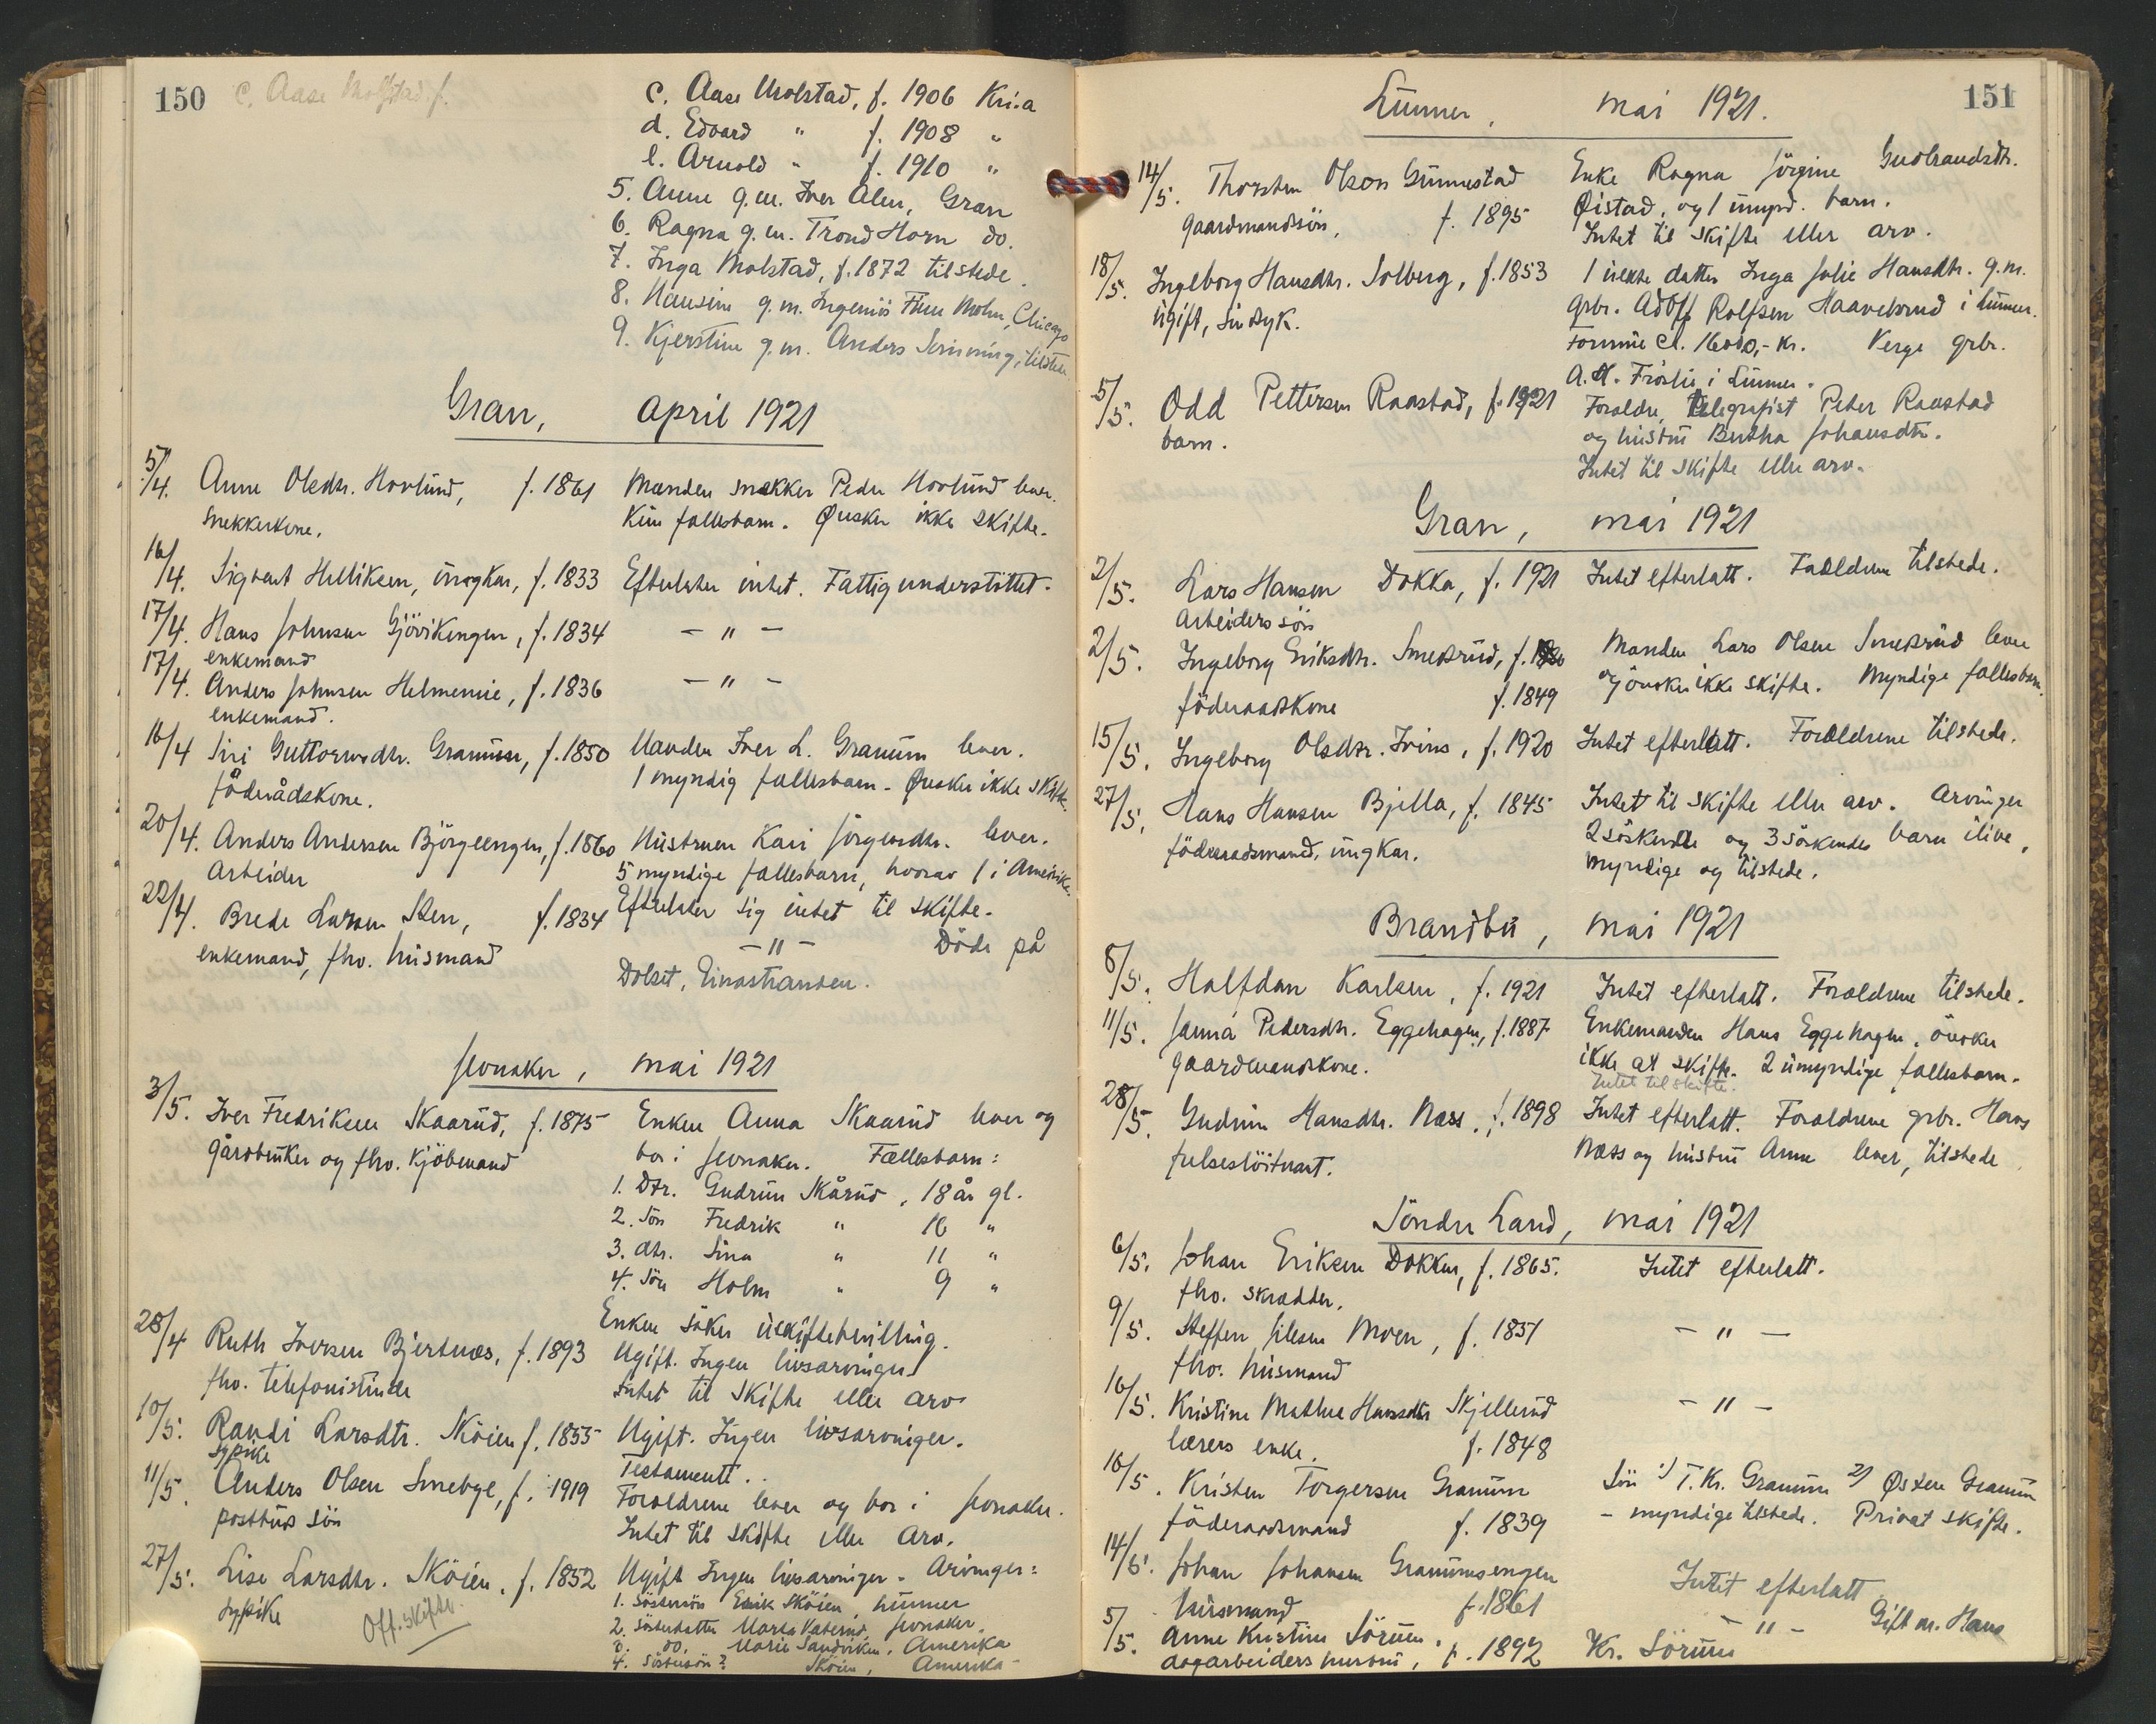 150 c. Aase Molstad, f.
c. Aase Molstad, f. 1906 Kri.a
d. Edvard " f. 1908 "
e. Arnold " f. 1910 "
5. Anne g.m. Iver Alm, Gran
6. Ragna g.m. Trond Horn do.
7. Inga Molstad, f. 1872 tilstede.
8. Hansine g.m. Ingeniör Mohn, Chicago
9. Kjerstine g.m. Anders
Gran, april 1921
5/4. Anne Olsdtr. Hovlund, f. 1861 Manden snekker Peder Hovlund lever.
snekkerkone. Kun fællesbarn. Ønsker ikke skifte.
16/4. Sigvart Helliksen, ungkar, f. 1833 Efterlater intet. Fattigunderstöttet.
17/4. Hans Johnsen Gjövikengen, f. 1834 - " -
enkemand
17/4. Anders Johnsen Helmeneie, f. 1836 - " -
enkemand.
16/4 Siri Guttormsdtr. Granum, f. 1850 Manden Iver L. Granum lever.
föderådskone. 1 myndig fællesbarn. Ønsker ikke skifte.
20/4. Anders Andersen Björgeengen, f. 1860 Hustruen Kari Jörgensdtr. lever.
Arbeider 5 myndige fællesbarn, hvorav 1 i Amerika.
22/4. Brede Larsen Sten, f. 1834 Efterlater sig intet til skifte.
enkemand, fhv. husmand - " - Döde på
Dolset, Einastranden.
Jevnaker, mai 1921
3/5. Iver Fredriksen Skaarud, f. 1875 Enken Anna Skaarud lever og
gårdbruker og fhv. kjöbmand bor i Jevnaker. Fællesbarn:
1. Dtr. Gudrun Skårud, 18 år gl.
2. Sön Fredrik " 16 "
3. dtr. Sina " 11 "
4. Sön Holm " 9 "
Enken söker uskiftebevilling.
28/4 Ruth Iversen Bjertnæs, f. 1893 Ugift. Ingen livsarvinger
fhv. telefonistinde Intet til skifte eller arv
10/5. Randi Larsdtr. Sköien f. 1855 Ugift. Ingen livsarvinger.
sypike Testament.
11/5. Anders Olsen Smebye, f. 1919 Forældrene lever og bor i Jevnaker.
postbuds sön Intet til skifte eller arv.
27/5. Lise Larsdtr. Sköien, f. 1852 Ugift Ingen livsarvinger. Arvinger:
sypike Off. skifte. 1. Söstersön Erik Sköien, Lunner
2. Sösterdatter Marta Vaterud, Jevnaker.
3. do. Marie Sandviken, Amerika
4. Söstersön ? Sköien, Amerika
151
Lunner, mai 1921.
14/5. Thorsten Olsen Gunnestad Enke Ragna Jörgine Gudbrandsdtr.
gaardmandssön, f. 1895 Øistad, og 1 umynd. barn.
Intet til skifte eller arv.
18/5. Ingeborg Hansdtr. Solberg, f. 1853 1 uekte datter Inga Julie Hansdtr. g.m.
ugift, sindsyk. gbr. Adolf Rolfsen Haavelsrud i Lunner.
Formue ca. 16000,- kr. Verge gbr.
A. H. Fröslie i Lunner.
5/5. Odd Pettersen Raastad, f. 1921 Forældre, telegrafist Peter Raastad
barn. og hustru Bertha Johansdtr.
Intet til skifte eller arv.
Gran, mai 1921
2/5. Lars Hansen Dokka, f. 1921 Intet efterlatt. Forældrene tilstede.
Arbeiders sön
2/5. Ingeborg Eriksdtr. Smedsrud, Manden Lars Olsen Smedsrud lever
föderaadskone f. 1849 og önsker ikke skifte. Myndige fællesbarn.
15/5. Ingeborg Olsdtr. f. 1920 Intet efterlatt. Forældrene tilstede.
27/5. Hans Hansen Bjella, f. 1845 Intet til skifte eller arv. Arvinger
föderaadsmand, ungkar. 2 söskende og 3 söskendes barn ilive,
myndige og tilstede.
Brandbu, mai 1921
8/5. Halfdan Karlsen, f. 1921 Intet efterlatt. Forældrene tilstede.
11/5. Janna Pedersdtr. Eggehagen, f. 1887 Enkemanden Hans Eggehagen, önsker
gaardmandskone. ikke at skifte. 2 umyndige fællesbarn.
Intet til skifte.
28/5. Gudrun Hansdtr. Næss, f. 1898 Intet efterlatt. Forældrene gbr. Hans
Næss og hustru Anne lever, tilstede
Söndre Land, mai 1921
6/5. Johan Eriksen Dokken, f. 1865. Intet efterlatt.
fhv. skrædder.
9/5. Steffen Moen, f. 1851 - " -
fhv. husmand
16/5. Kristine Mathea Hansdtr Skjellerud - " -
lærers enke. f. 1848
16/5. Kristen Torgersen Granum Sön 1) T. Kr. Granum 2) Østen Granum
föderaadsmand f. 1839 - myndige tilstede. Privat skifte.
14/5. Johan Johansen Granumsengen Intet efterlatt
husmand f. 1861
5/5. Anne Kristine Sörum, - " - Gift m. Hans
dagarbeiders hustru, f. 1892 Kr. Sörum